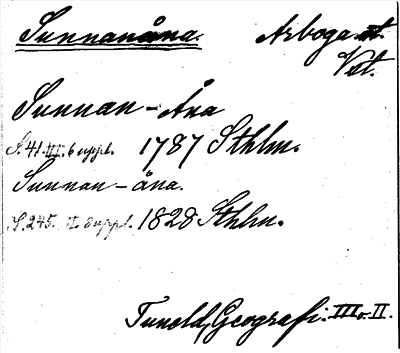 Sunnanåna. Arboga st.
Vst.
Sunnan-Åna
S. 41. III. 6 uppl. 1787 Sthlm.
Sunnan-åna.
S. 245. II. 8 uppl. 1828 Sthlm.
Tuneld, Geografi. III o. II.